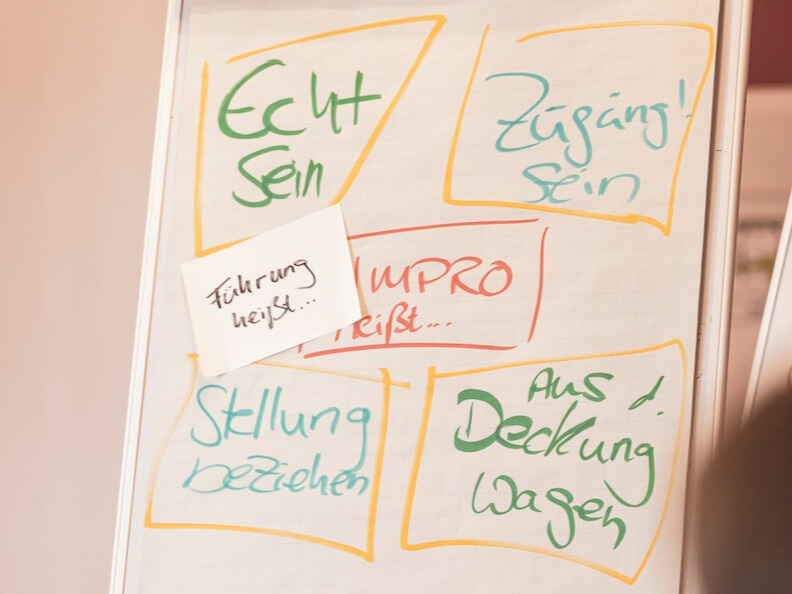 Echt
Sein
Zugäng!
Sein
Führung
heißt...
IMPRO
heißt...
Stellung
beziehen
Aus d.
Deckung
wagen